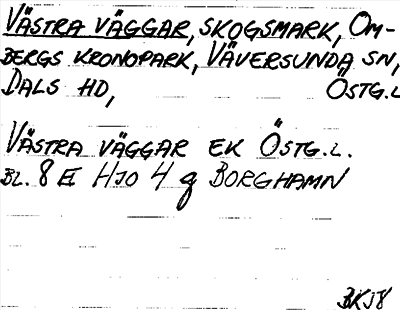 VÄSTRA VÄGGAR, SKOGSMARK, OM-
BERGS KRONOPARK, VÄVERSUNDA SN,
DALS HD, ÖSTG.L
VÄSTRA VÄGGAR EK ÖSTG.L.
BL. 8 E HJO 4 g BORGHAMN
BKJ8